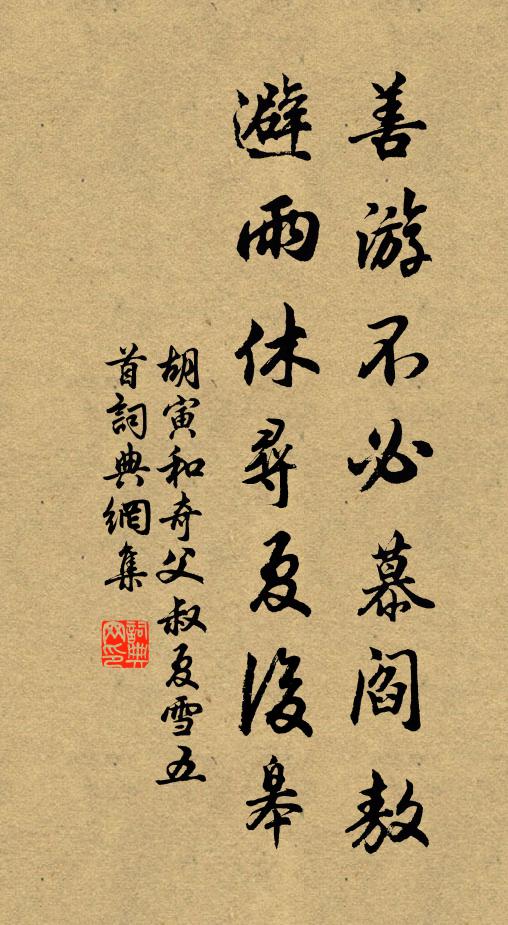 善游不必慕閻敖
避雨休尋夏後皋
胡寅和奇父叔夏雪五
首詞典網集
詞典
网印